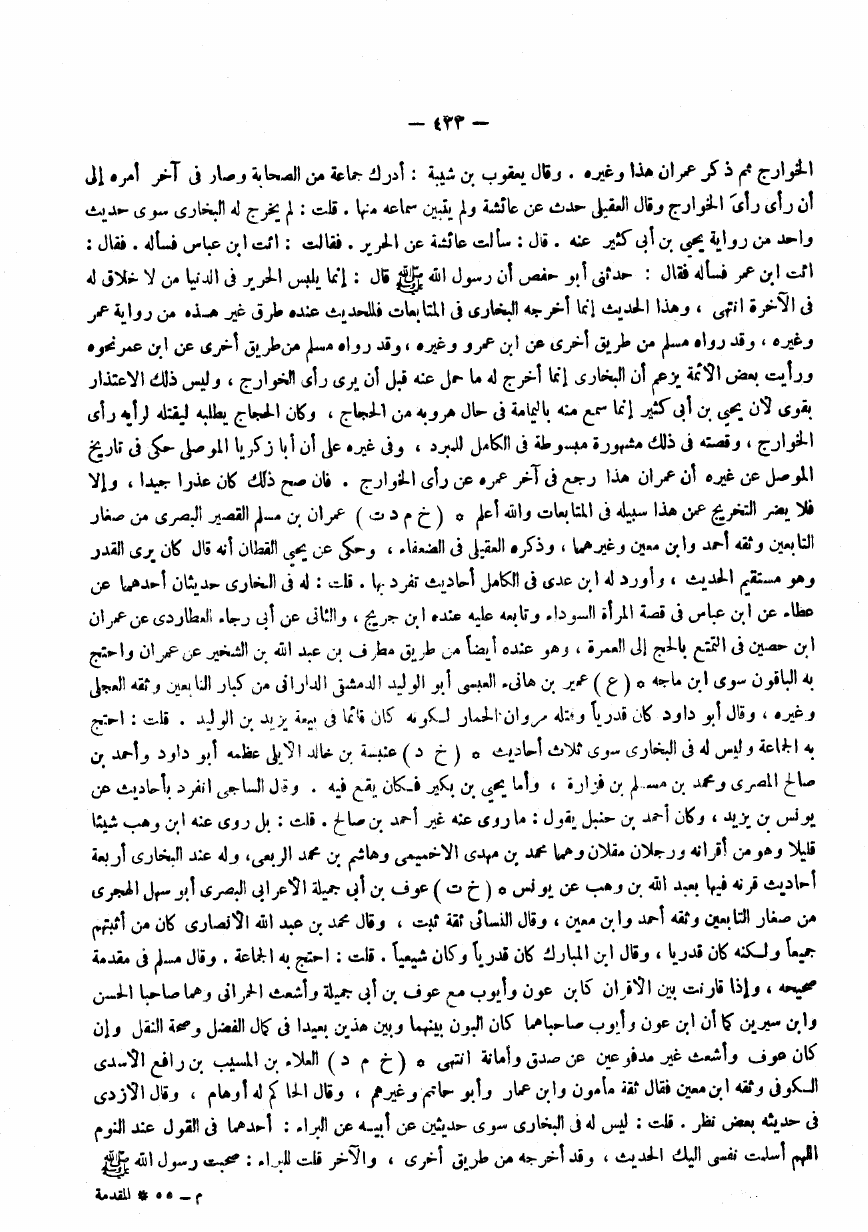 — ٤٣٣ —
الخوارج ثم ذكر عمران هذا وغيره . وقال يعقوب بن شيبة : أدرك جماعة من الصحابة وصار فى آخر أمره إلى
أن رأى رأىَ الخوارج وقال العقيلى حدث عن عائشة ولم يتبين سماعه منها . قلت : لم يخرج له البخارى سوى حديث
واحد من رواية يحيى بن أبى كثير عنه . قال : سألت عائشة عن الحرير . فقالت : ائت ابن عباس فسأله . فقال :
ائت ابن عمر فسأله فقال : حدثنى أبو حفص أن رسول الله ﷺ قال : إنما يلبس الحرير فى الدنيا من لا خلاق له
فى الآخرة انتهى ، وهذا الحديث إنما أخرجه البخارى فى المتابعات فللحديث عنده طرق غير هذه من رواية عمر
وغيره ، وقد رواه مسلم من طريق أخرى عن ابن عمرو وغيره ، وقد رواه مسلم من طريق أخرى عن ابن عمر نحوه
ورأيت بعض الأئمة يزعم أن البخارى إنما أخرج له ما حمل عنه قبل أن يرى رأى الخوارج ، وليس ذلك الاعتذار
بقوى لان يحيى بن أبى كثير إنما سمع منه باليمامة فى حال هروبه من الحجاج ، وكان الحجاج يطلبه ليقتله لرأيه رأى
الخوارج ، وقصته فى ذلك مشهورة مبسوطة فى الكامل للمبرد ، وفى غيره على أن أبا زكريا الموصلى حكى فى تاريخ
الموصل عن غيره أن عمران هذا رجع فى آخر عمره عن رأى الخوارج . فان صح ذلك كان عذرا جيدا ، وإلا
فلا يضر التخريج عمن هذا سبيله فى المتابعات والله أعلم * ( خ م د ت ) عمران بن مسلم القصير البصرى من صغار
التابعين وثقه أحمد وابن معين وغيرهما ، وذكره العقيلى فى الضعفاء ، وحكى عن يحيى القطان أنه قال كان يرى القدر
وهو مستقيم الحديث ، وأورد له ابن عدى فى الكامل أحاديث تفرد بها . قلت : له فى البخارى حديثان أحدهما عن
عطاء عن ابن عباس فى قصة المرأة السوداء وتابعه عليه عنده ابن جريج ، والثانى عن أبى رجاء العطاردى عن عمران
ابن حصين فى التمتع بالحج إلى العمرة ، وهو عنده أيضاً من طريق مطرف بن عبد الله بن الشخير عن عمران واحتج
به الباقون سوى ابن ماجه * ( ع ) عمير بن هانىء العبسى أبو الوليد الدمشقى الدارانى من كبار التابعين وثقه العجلى
وغيره ، وقال أبو داود كان قدرياً وقتله مروان الحمار لكونه كان قائما فى بيعة يزيد بن الوليد . قلت : احتج
به الجماعة وليس له فى البخارى سوى ثلاث أحاديث * ( خ د ) عنبسة بن خالد الايلى عظمه أبو داود وأحمد بن
صالح المصرى ومحمد بن مسلم بن فزارة ، وأما يحيى بن بكير فكان يقع فيه . وقال الساجى انفرد بأحاديث عن
يونس بن يزيد ، وكان أحمد بن حنبل يقول : ما روى عنه غير أحمد بن صالح . قلت : بل روى عنه ابن وهب شيئا
قليلا وهو من أقرانه ورجلان مقلان وهما محمد بن مهدى الاخميمى وهاشم بن محمد الربعى، وله عند البخارى أربعة
أحاديث قرنه فيها بعبد الله بن وهب عن يونس * ( خ ت ) عوف بن أبى جميلة الأعرابى البصرى أبو سهل الهجرى
من صغار التابعين وثقه أحمد وابن معين ، وقال النسائى ثقة ثبت ، وقال محمد بن عبد الله الأنصارى كان من أثبتهم
جميعاً ولكنه كان قدريا ، وقال ابن المبارك كان قدرياً وكان شيعياً . قلت : احتج به الجماعة . وقال مسلم فى مقدمة
صحيحه ، وإذا قارنت بين الأقران كابن عون وأيوب مع عوف بن أبى جميلة وأشعث الحرانى وهما صاحبا الحسن
وابن سيرين كما أن ابن عون وأيوب صاحباهما كان البون بينهما وبين هذين بعيدا فى كمال الفضل وصحة النقل وإن
كان عوف وأشعث غير مدفوعين عن صدق وأمانة انتهى * ( خ م د ) العلاء بن المسيب بن رافع الأسدى
الكوفى وثقه ابن معين فقال ثقة مأمون وابن عمار وأبو حاتم وغيرهم ، وقال الحاكم له أوهام ، وقال الأزدى
فى حديثه بعض نظر . قلت : ليس له فى البخارى سوى حديثين عن أبيه عن البراء : أحدهما فى القول عند النوم
اللهم أسلمت نفسى اليك الحديث ، وقد أخرجه من طريق أخرى ، والآخر قلت للبراء : صحبت رسول الله ﷺ
م — ٥٥ * المقدمة